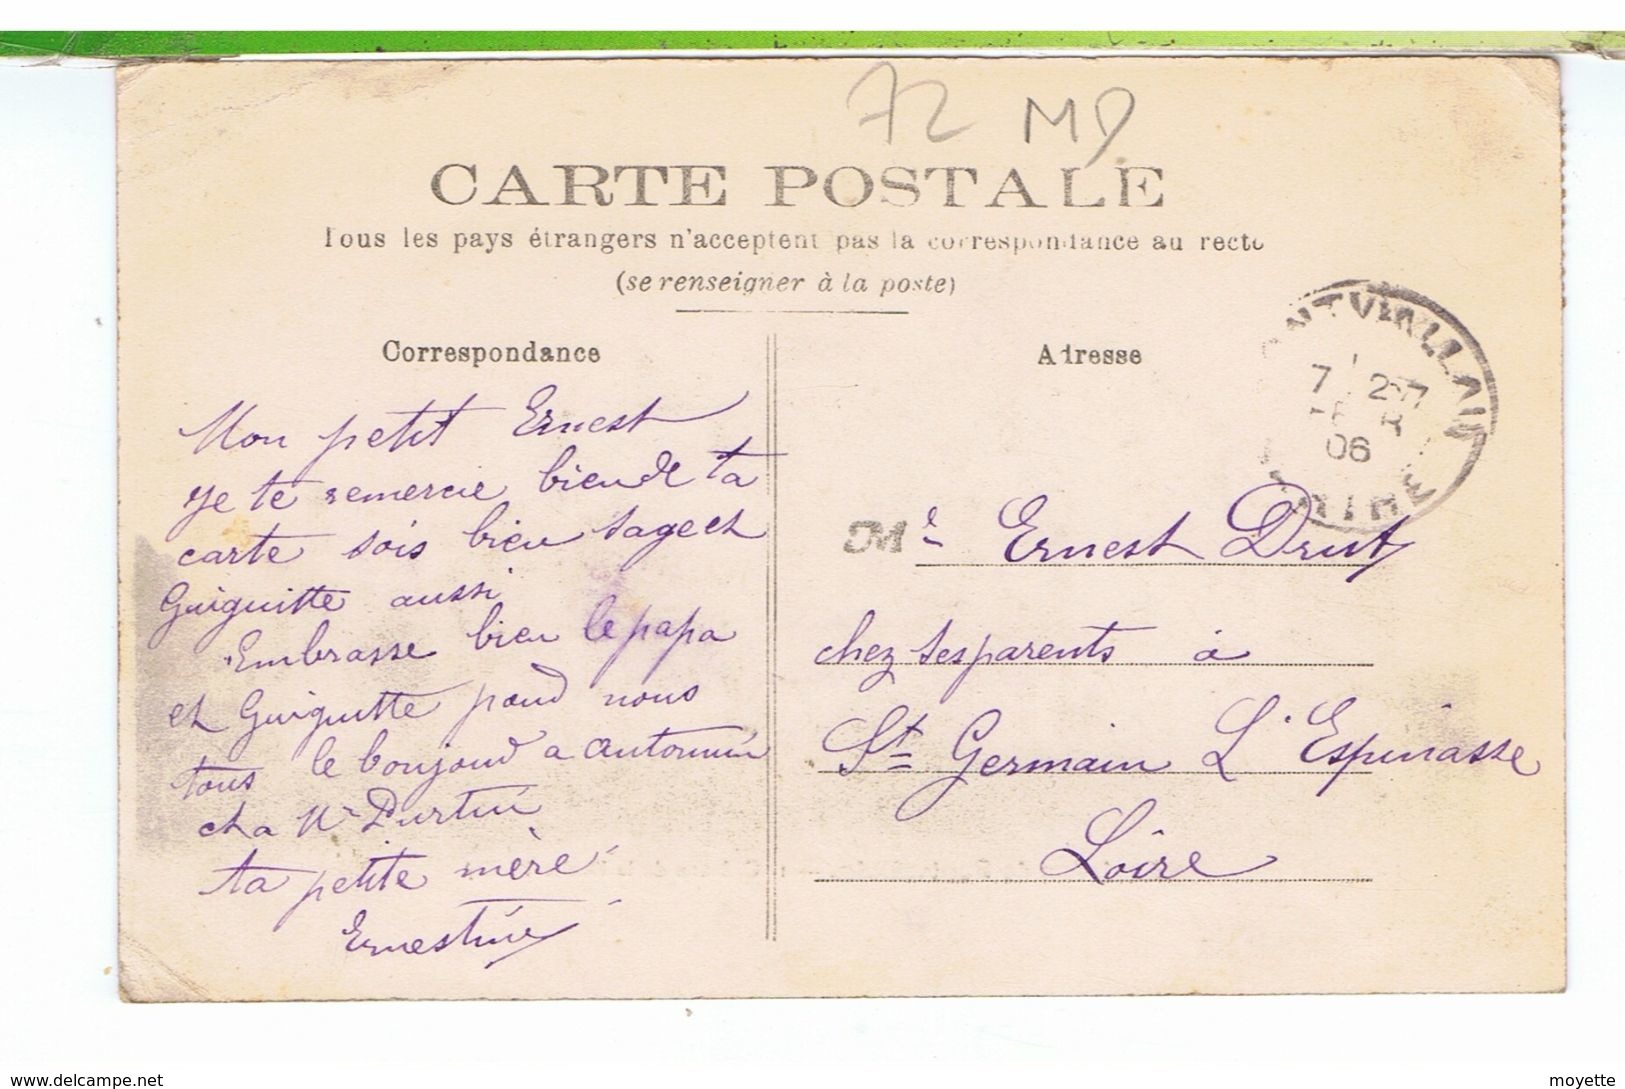 72 M9
CARTE POSTALE
Tous les pays étrangers n'acceptent pas la correspondance au recto
(se renseigner à la poste)
Correspondance
Adresse
7 27
06
Mon petit Ernest
Je te remercie bien de ta
carte sois bien sage et
Guiguitte aussi
Embrasse bien le papa
et Guiguitte pour nous
tous le bonjour a
et a Mr
ta petite mère
Ernestine
Mr Ernest Drut
chez ses parents à
St Germain L'Espinasse
Loire
www.delcampe.net
moyette